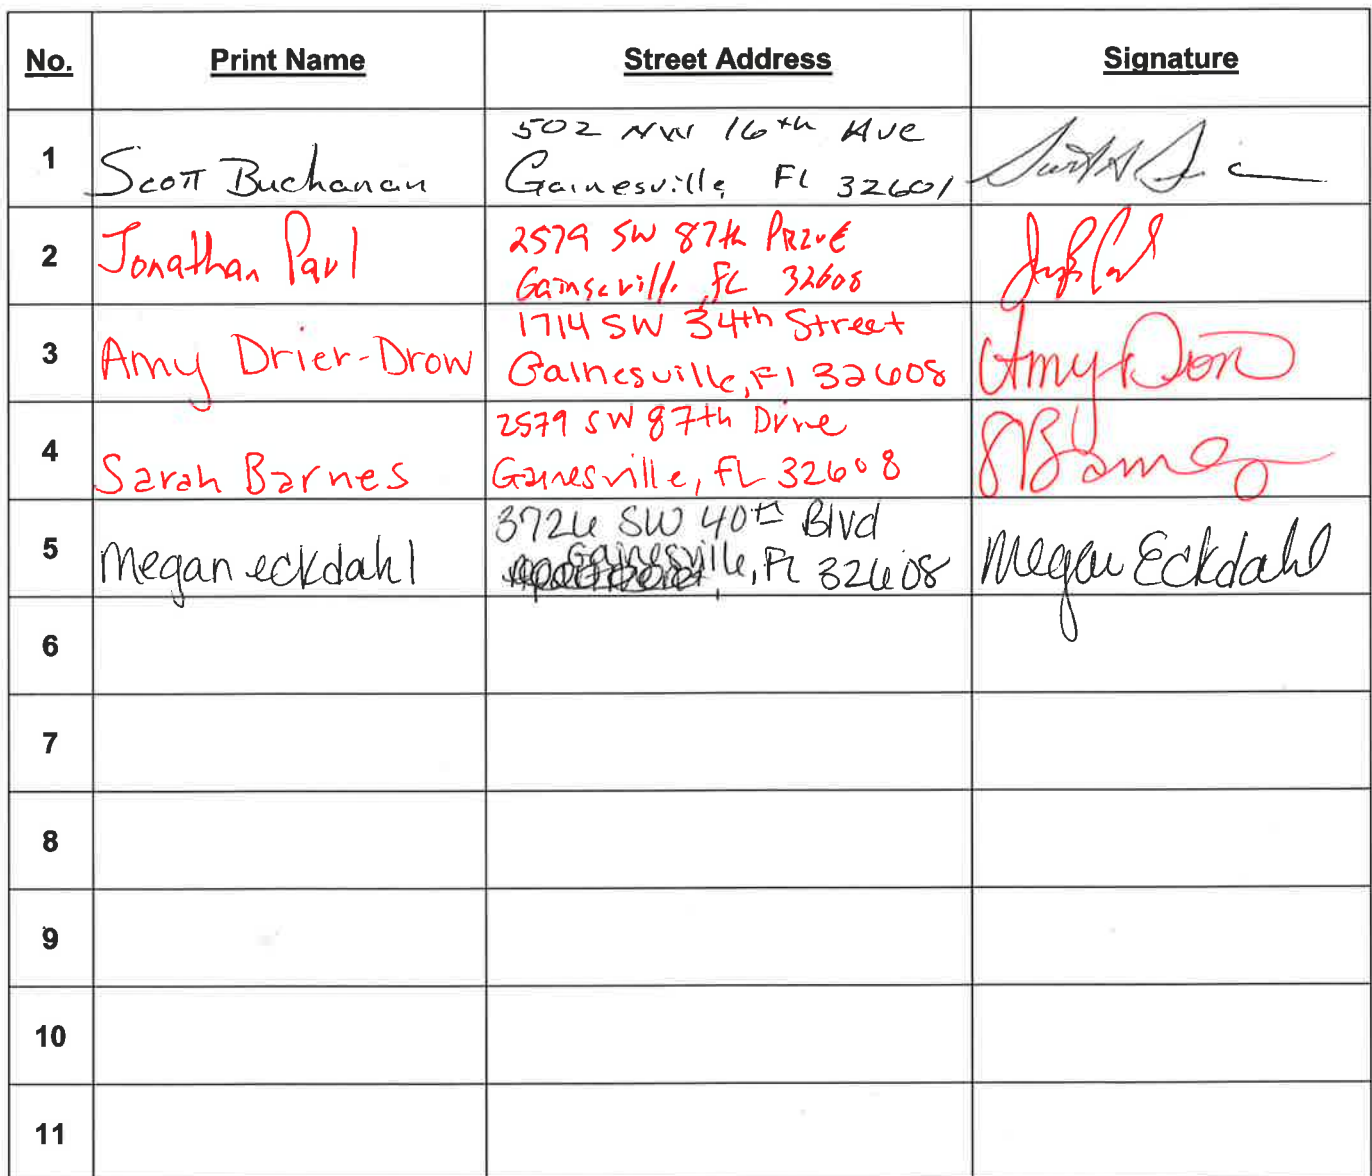 No. Print Name Street Address Signature
1 Scott Buchanan 502 NW 16th Ave
Gainesville FL 32601
2 Jonathan Paul 2579 SW 87th Drive
Gainsevill. , FL 32608
3 Amy Drier-Drow 1714 SW 34th Street
Gainesville, Fl 32608 Amy
4 Sarah Barnes 2579 SW 87th Drive
Gainesville, FL 32608 SBarnes
5 Megan eckdahl 3726 SW 40th Blvd
Gainesville, FL 32608 Megan Eckdahl
6
7
8
9
10
11